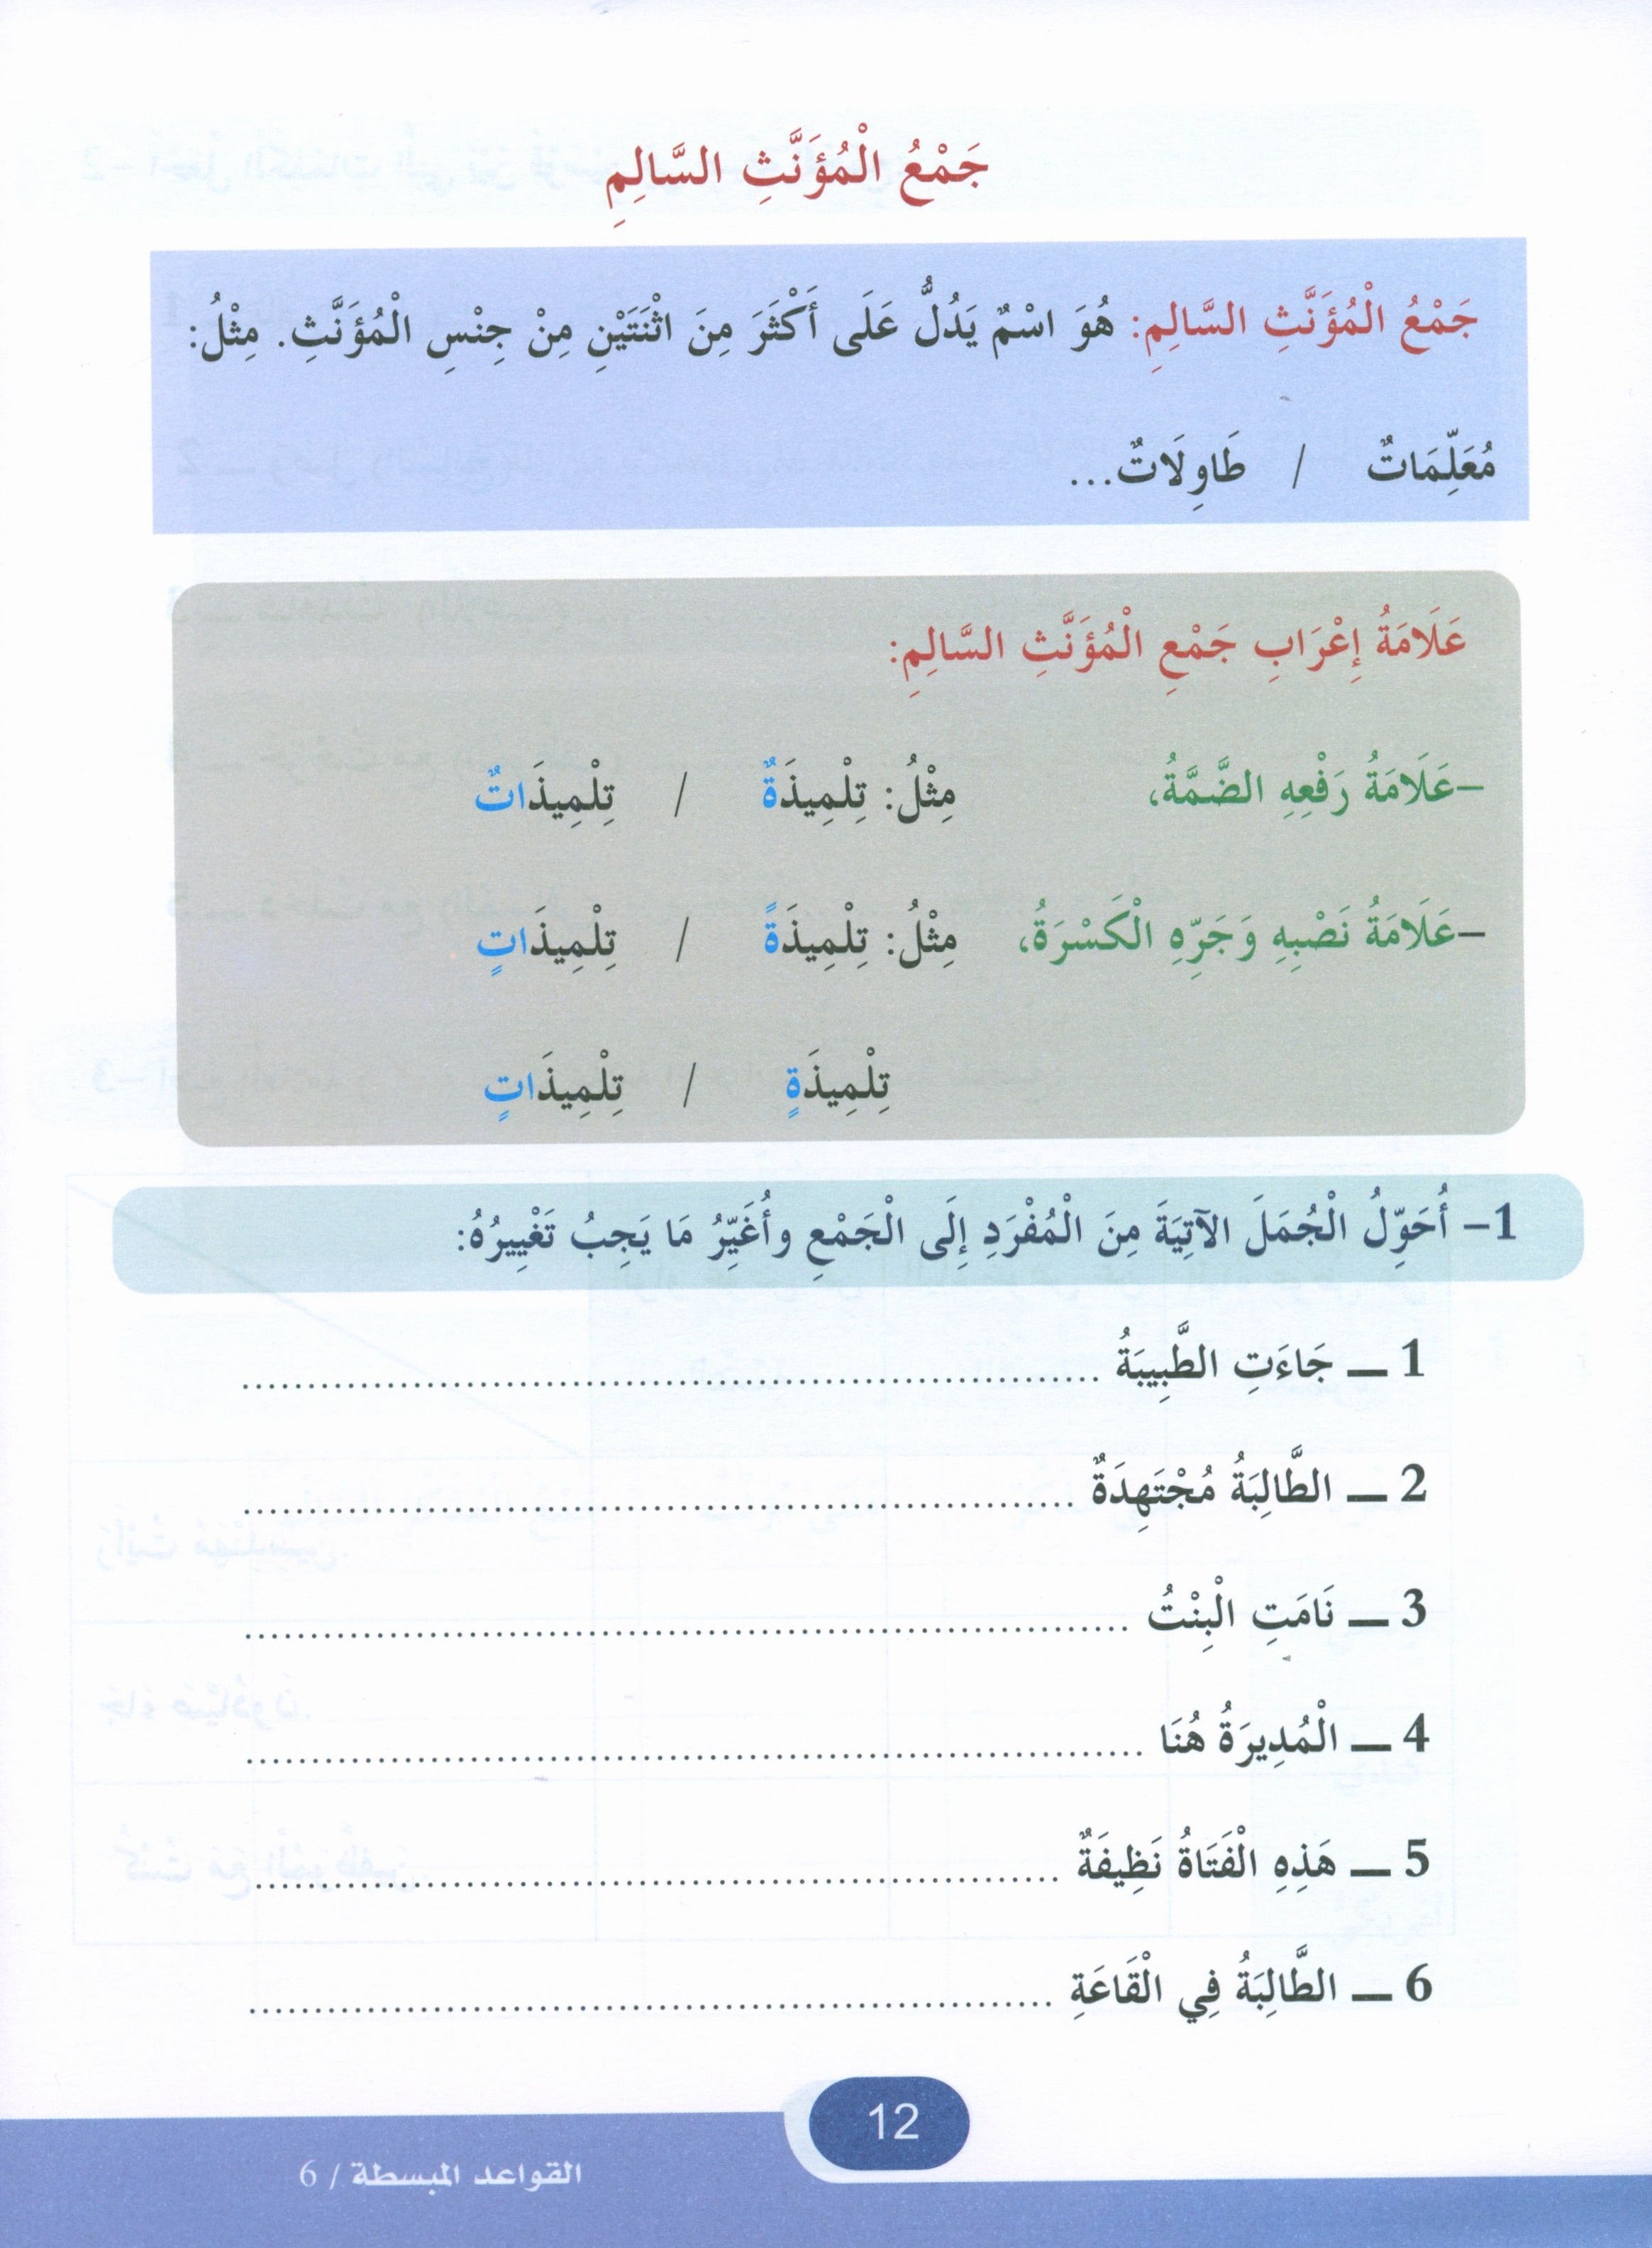 جَمْعُ الْمُؤَنَّثِ السَّالِمِ
جَمْعُ الْمُؤَنَّثِ السَّالِمِ: هُوَ اسْمٌ يَدُلُّ عَلَى أَكْثَرَ مِنَ اثْنَتَيْنِ مِنْ جِنْسِ الْمُؤَنَّثِ. مِثْلُ:
مُعَلِّمَاتٌ / طَاوِلَاتٌ...
عَلَامَةُ إِعْرَابِ جَمْعِ الْمُؤَنَّثِ السَّالِمِ:
–عَلَامَةُ رَفْعِهِ الضَّمَّةُ، مِثْلُ: تِلْمِيذَةٌ / تِلْمِيذَاتٌ
–عَلَامَةُ نَصْبِهِ وَجَرِّهِ الْكَسْرَةُ، مِثْلُ: تِلْمِيذَةً / تِلْمِيذَاتٍ
تِلْمِيذَةٍ / تِلْمِيذَاتٍ
1– أُحَوِّلُ الْجُمَلَ الآتِيَةَ مِنَ الْمُفْرَدِ إِلَى الْجَمْعِ وأُغَيِّرُ مَا يَجِبُ تَغْيِيرُهُ:
1 ــ جَاءَتِ الطَّبِيبَةُ ........................................
2 ــ الطَّالِبَةُ مُجْتَهِدَةٌ ........................................
3 ــ نَامَتِ الْبِنْتُ ........................................
4 ــ الْمُدِيرَةُ هُنَا ........................................
5 ــ هَذِهِ الْفَتَاةُ نَظِيفَةٌ ........................................
6 ــ الطَّالِبَةُ فِي الْقَاعَةِ ........................................
12
القواعد المبسطة / 6